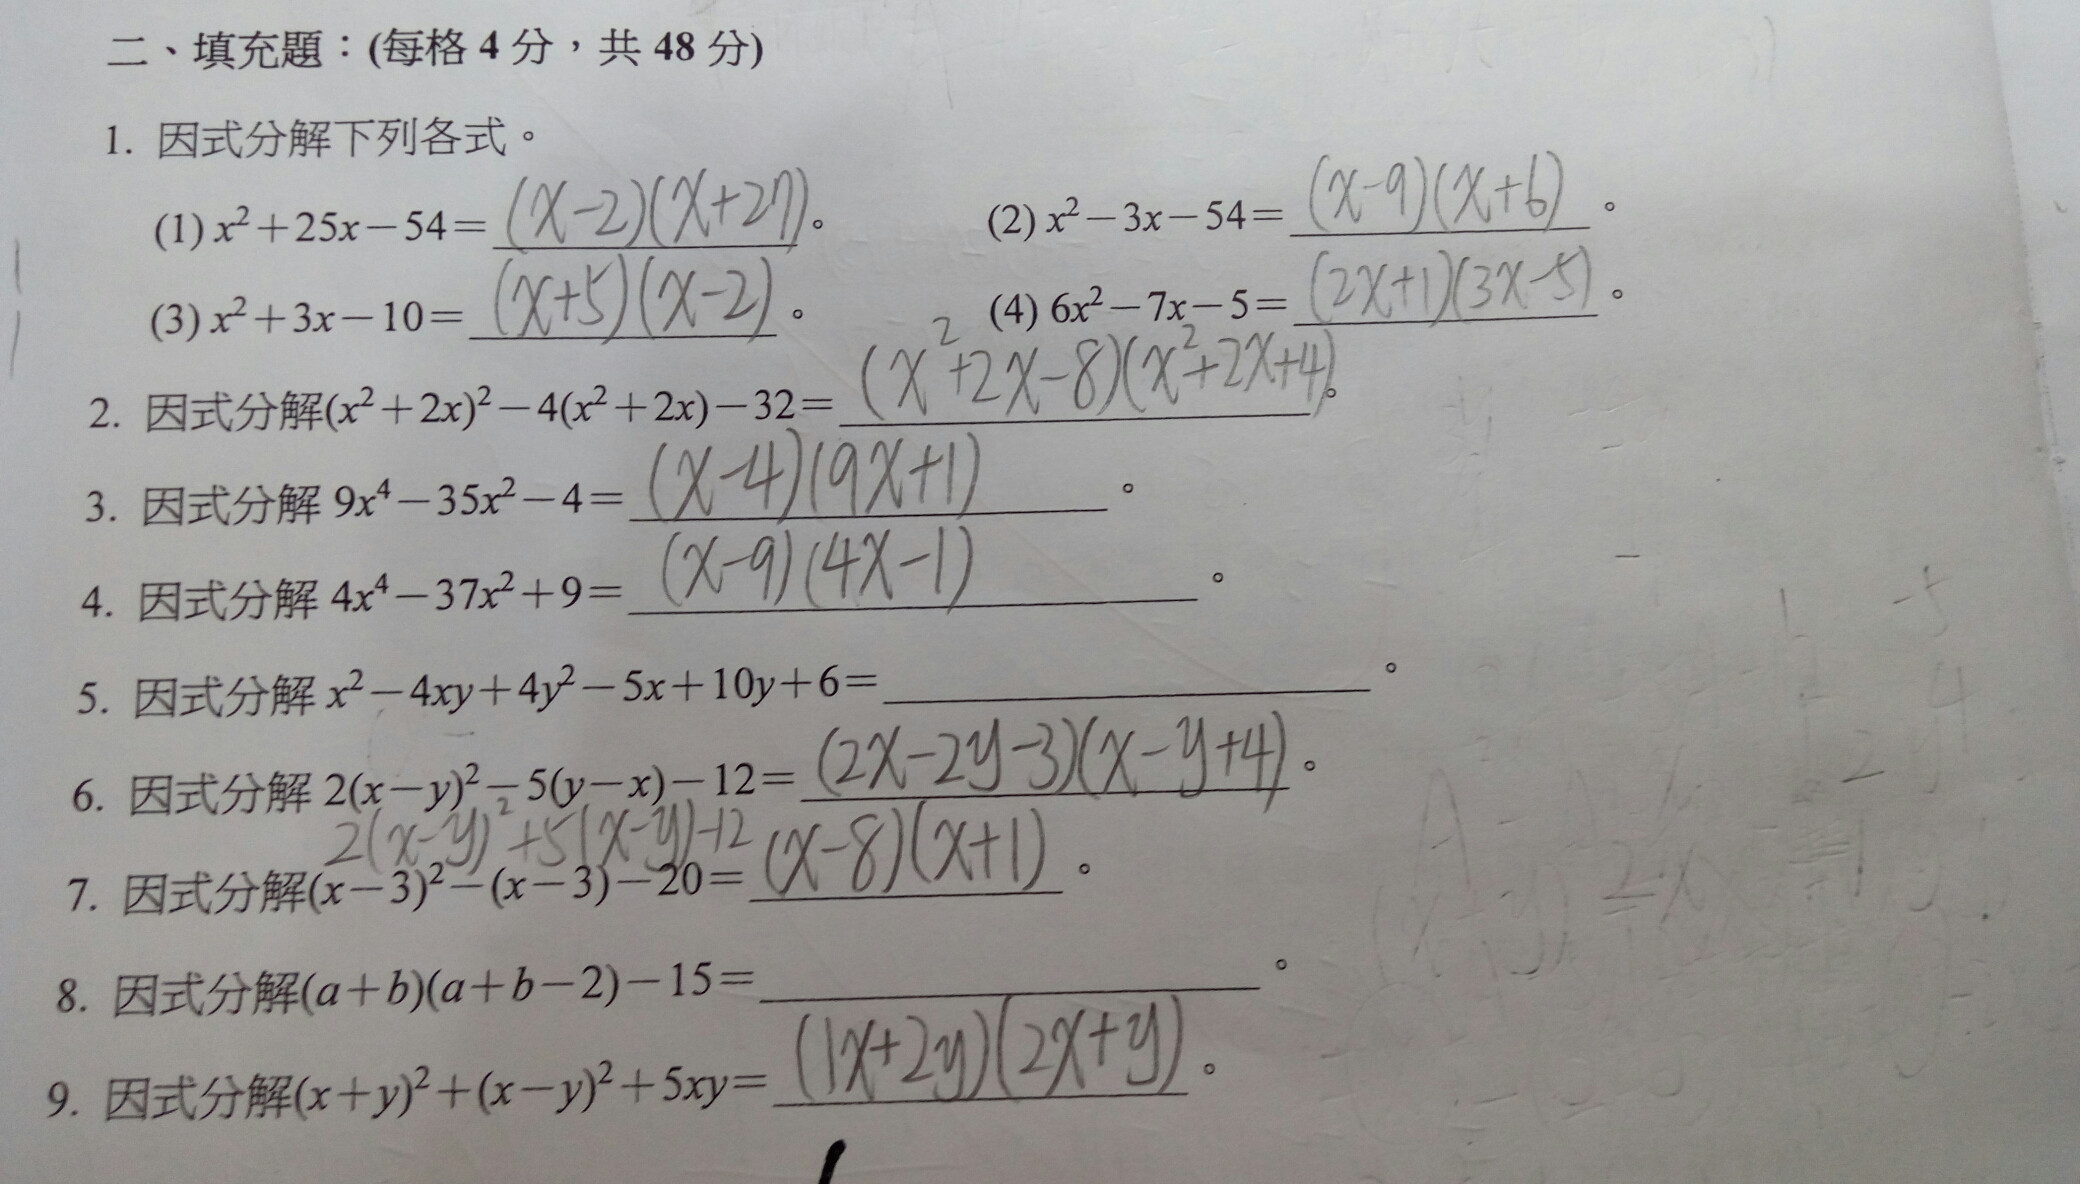 二、填充題：(每格 4 分，共 48 分)
1. 因式分解下列各式。
(1) x²＋25x－54＝(x-2)(x+27)。 (2) x²－3x－54＝(x-9)(x+6)。
(3) x²＋3x－10＝(x+5)(x-2)。 (4) 6x²－7x－5＝(2x+1)(3x-5)。
2. 因式分解(x²＋2x)²－4(x²＋2x)－32＝(x²+2x-8)(x²+2x+4)。
3. 因式分解 9x⁴－35x²－4＝(x-4)(9x+1)。
4. 因式分解 4x⁴－37x²＋9＝(x-9)(4x-1)。
5. 因式分解 x²－4xy＋4y²－5x＋10y＋6＝。
6. 因式分解 2(x－y)²－5(y－x)－12＝(2x-2y-3)(x-y+4)。
2(x-y)²+5(x-y)-12
7. 因式分解(x－3)²－(x－3)－20＝(x-8)(x+1)。
8. 因式分解(a＋b)(a＋b－2)－15＝。
9. 因式分解(x＋y)²＋(x－y)²＋5xy＝(1x+2y)(2x+y)。